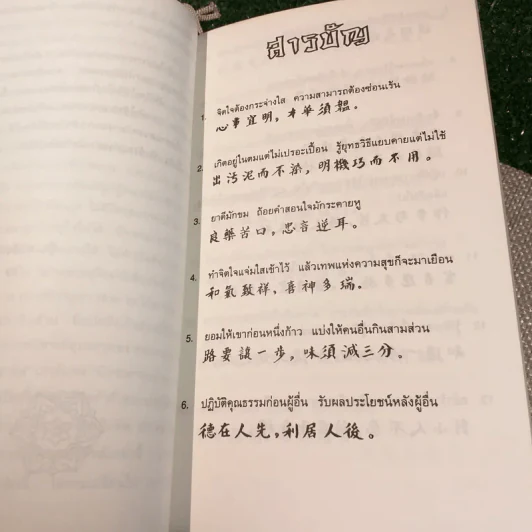 สารบัญ
1. จิตใจต้องกระจ่างใส ความสามารถต้องซ่อนเร้น
心事宜明，才華須韞。
2. เกิดอยู่ในตมแต่ไม่เปรอะเปื้อน รู้ยุทธวิธีแยบคายแต่ไม่ใช้
出污泥而不染，明機巧而不用。
3. ยาดีมักขม ถ้อยคำสอนใจมักระคายหู
良藥苦口，忠言逆耳。
4. ทำจิตใจแจ่มใสเข้าไว้ แล้วเทพแห่งความสุขก็จะมาเยือน
和氣致祥，喜神多瑞。
5. ยอมให้เขาก่อนหนึ่งก้าว แบ่งให้คนอื่นกินสามส่วน
路要讓一步，味須減三分。
6. ปฏิบัติคุณธรรมก่อนผู้อื่น รับผลประโยชน์หลังผู้อื่น
德在人先，利居人後。